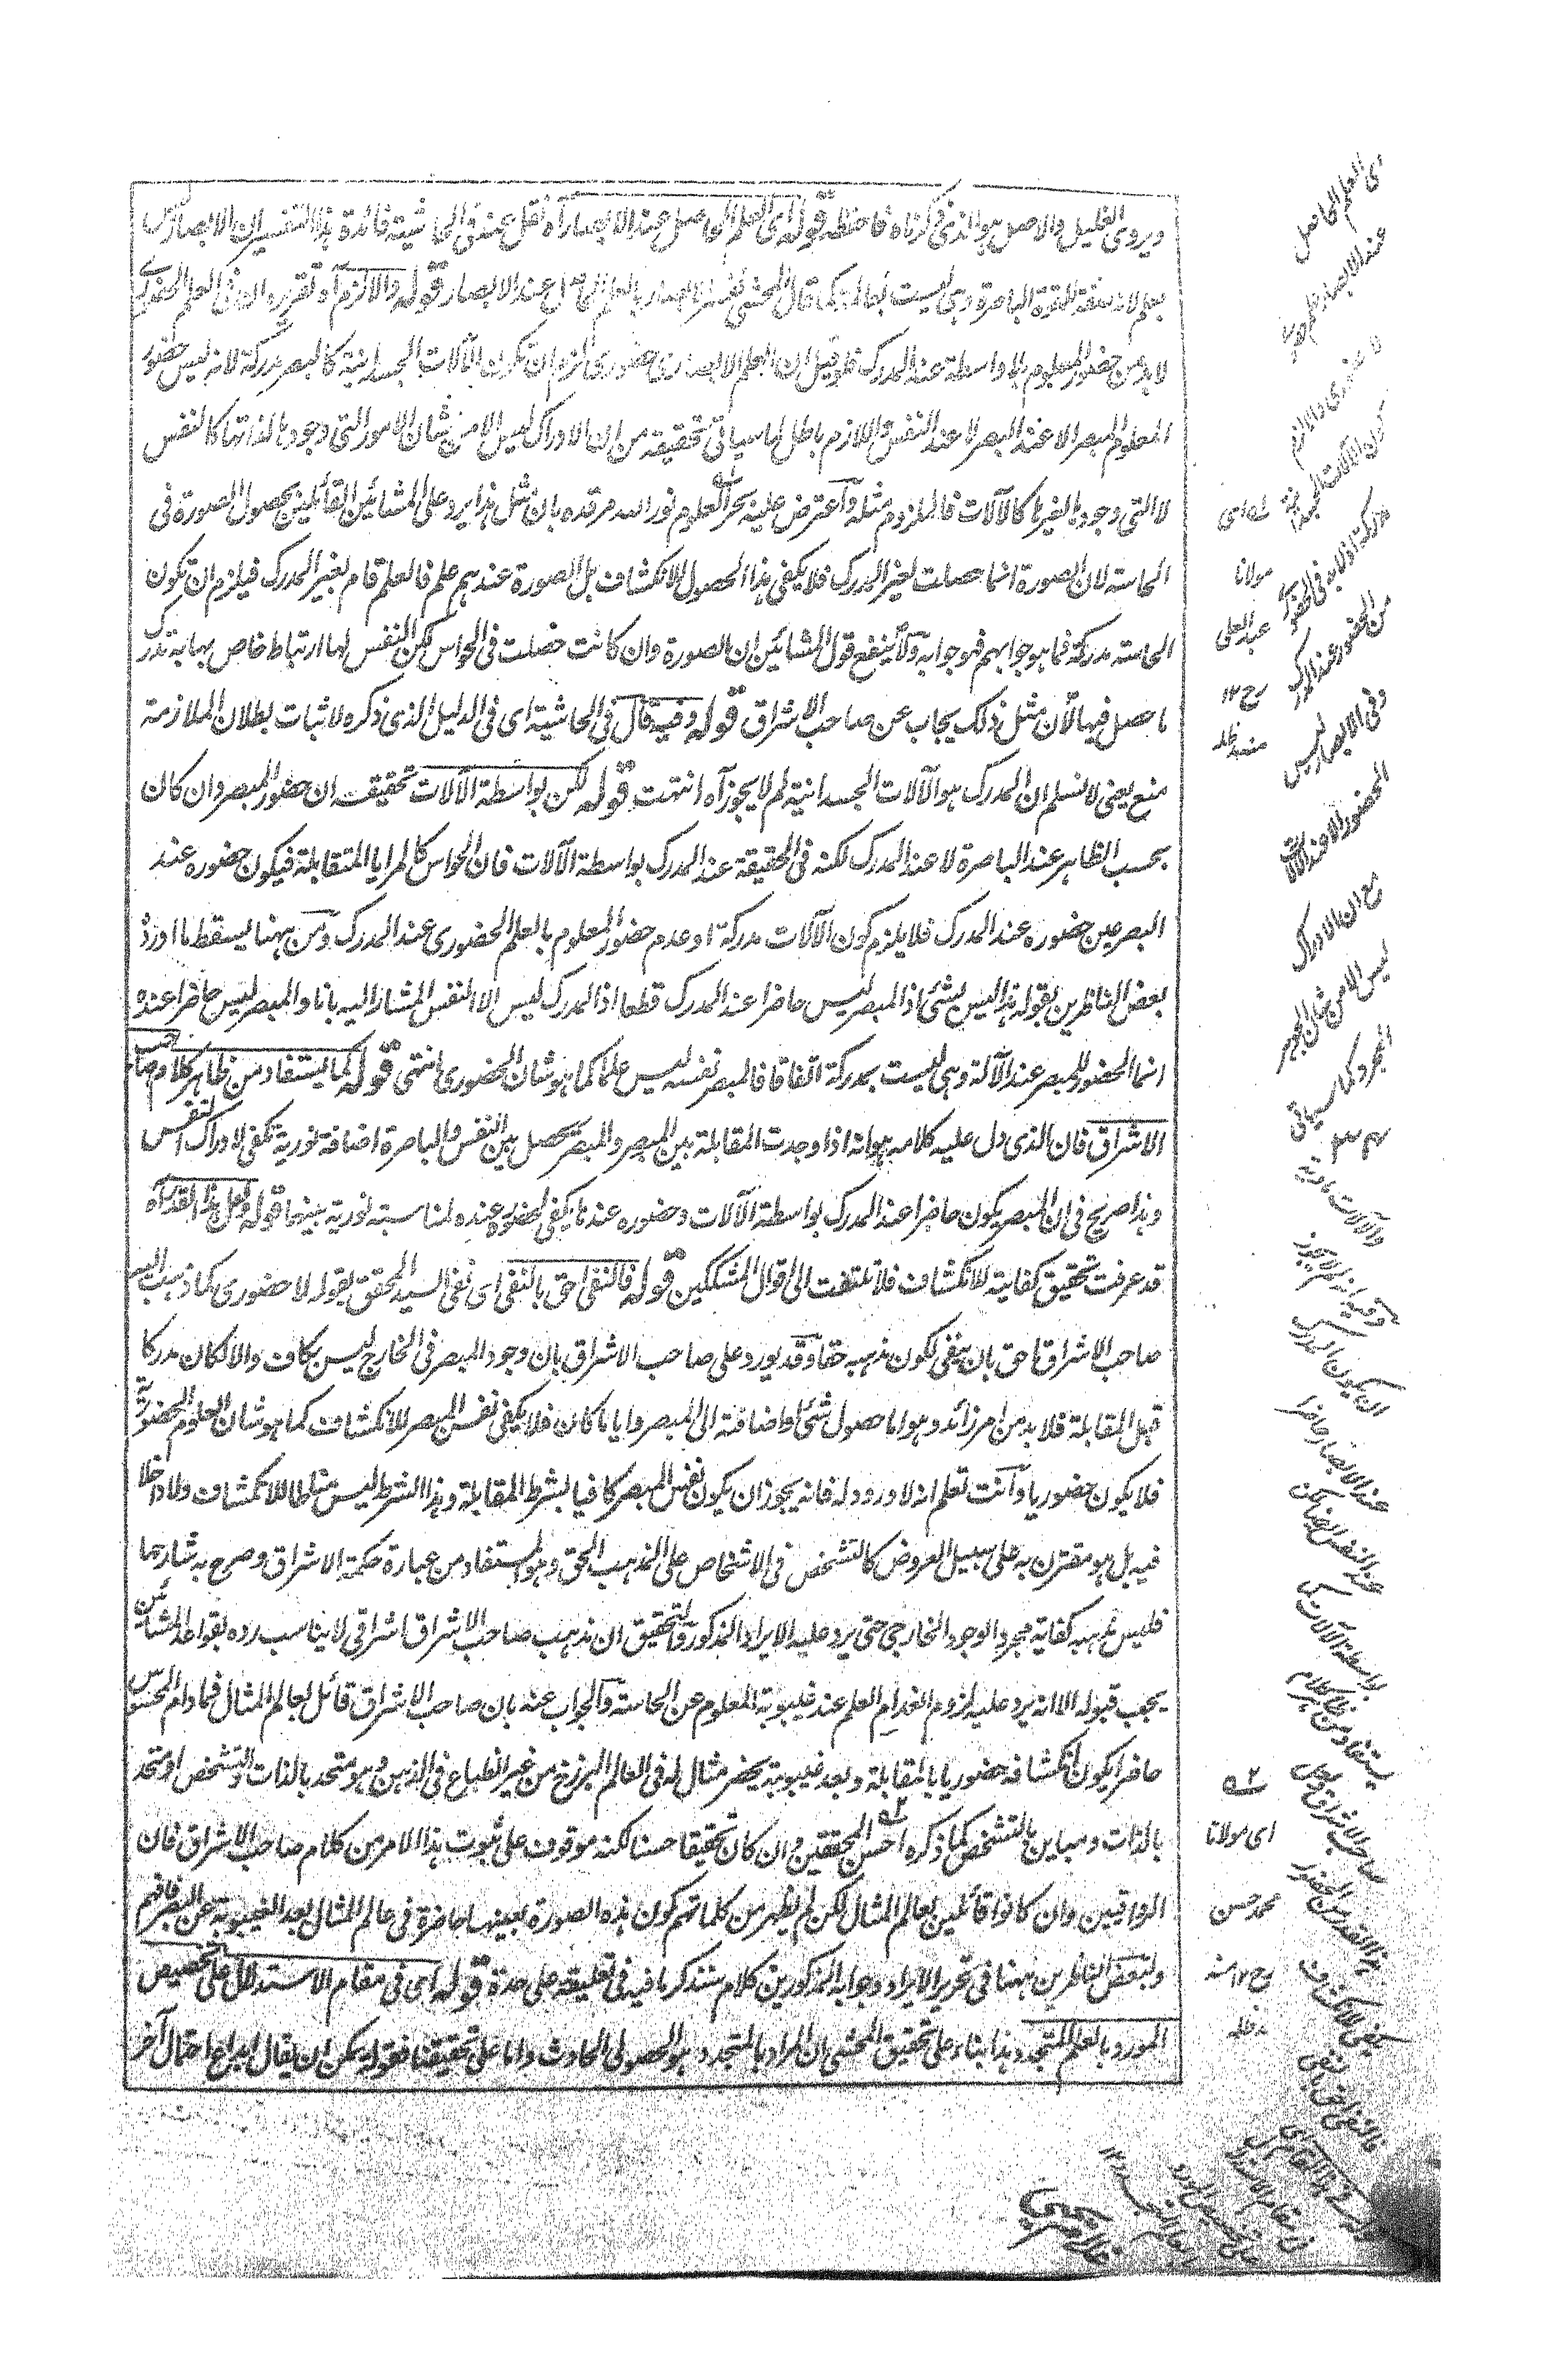 ويروى الغليل والاصل هو الذي ذكرناه فاحفظه قوله اى العلم الحاصل عند الابصار آه نقل عنه فى الحاشية فائدة هذا التفسير ان الابصار ليس
بعلم لانه صفة للقوة الباصرة وهى ليست بعالمة كما قال المحشى تفسير الابصار بالعلم الحاصل عند الابصار قوله والالزم آه تقريره ان فى العلم الحضورى
لابد من حضور المعلوم بلا واسطة عند المدرك فلو قيل ان العلم الابصارى حضورى لزم ان تكون الآلات الجسدانية كالبصر مدركة لانه ليس حضور
المعلوم المبصر الا عند البصر لا عند النفس واللازم باطل لما سياتى تحقيقه من ان الادراك ليس الا من شان الامور التى وجودها لذاتها كالنفس
لا التى وجودها لغيرها كالآلات فالملزوم مثله واعترض عليه بحر العلوم نور الله مرقده بان مثل هذا يرد على المشائين القائلين بحصول الصورة فى
الحاسة لان الصورة انما حصلت لغير المدرك فلا يكفى هذا الحصول للانكشاف بل الصورة عندهم علم فالعلم قام بغير المدرك فيلزم ان تكون
الحاسة مدركة فما هو جوابهم فهو جوابه ولا ينفع قول المشائين ان الصورة وان كانت حصلت فى الحواس لكن النفس لها ارتباط خاص بها به تدرك
ما حصل فيها لان مثل ذلك يجاب عن صاحب الاشراق قوله وفيه قال فى الحاشية اى فى الدليل الذى ذكره لاثبات بطلان الملازمة
منع يعنى لا نسلم ان المدرك هو الآلات الجسدانية لم لا يجوز آه انتهت قوله لكن بواسطة الآلات تحقيقه ان حضور المبصر وان كان
بحسب الظاهر عند الباصرة لا عند المدرك لكنه فى الحقيقة عند المدرك بواسطة الآلات فان الحواس كالمرايا المتقابلة فيكون حضوره عند
البصر عين حضوره عند المدرك فلا يلزم كون الآلات مدركة او عدم حضور المعلوم بالعلم الحضورى عند المدرك ومن ههنا يسقط ما اورد
بعض الناظرين بقوله هذا ليس بشئ اذ المبصر ليس حاضرا عند المدرك قطعا اذ المدرك ليس الا النفس المشار اليه بانا والمبصر ليس حاضرا عنده
انما الحضور للمبصر عند الآلة وهى ليست بمدركة اتفاقا فالمبصر نفسه ليس علما كما هو شان الحضورى انتهى قوله كما يستفاد من ظاهر كلام صاحب
الاشراق فان الذى دل عليه كلامه هو انه اذا وجدت المقابلة بين المبصِر والمبصَر يحصل بين النفس والباصرة اضافة نورية تكفى لادراك النفس
وهذا صريح فى ان المبصر يكون حاضرا عند المدرك بواسطة الآلات وحضوره عندها يكفى لحضوره عنده لمناسبة نورية بينهما قوله ولعل هذا القدر آه
قد عرفت تحقيق كفاية للانكشاف فلا تلتفت الى اقوال المشككين قوله فالنفى احق بالنفى اى نفى السيد المحقق بقوله لا حضورى كما ذهب اليه
صاحب الاشراق احق بان ينفى لكون مذهبه حقا وقد يورد على صاحب الاشراق بان وجود المبصر فى الخارج ليس بكاف والا لكان مدركا
قبل المقابلة فلابد من امر زائد وهو اما حصول شئ او اضافة الى المبصر وايا ما كان فلا يكفى نفس المبصر للانكشاف كما هو شان العلوم الحضورية
فلا يكون حضوريا وانت تعلم انه لا ورود له فانه يجوز ان يكون نفس المبصر كافيا بشرط المقابلة وهذا الشرط ليس مناطا للانكشاف ولا داخلا
فيه بل هو مقترن به على سبيل العروض كالتشخص فى الاشخاص على المذهب الحق وهو المستفاد من عبارة حكمة الاشراق وصرح به شارحها
فليس مذهبه كفاية مجرد الوجود الخارجى حتى يرد عليه الايراد المذكور والتحقيق ان مذهب صاحب الاشراق اشراقى لا يناسب رده بقواعد المشائين
يجب قبوله الا انه يرد عليه لزوم انعدام العلم عند غيبوبة المعلوم عن الحاسة والجواب عنه بان صاحب الاشراق قائل بعالم المثال فما دام المحسوس
حاضرا يكون انكشافه حضوريا بالمقابلة وبعد غيبوبته يحضر مثال له فى العالم البرزخ من غير انطباع فى الذهن وهو متحد بالذات والتشخص او متحد
بالذات ومباين بالتشخص كما ذكره احسن المحققين وان كان تحقيقا حسنا لكنه موقوف على ثبوت هذا الامر من كلام صاحب الاشراق فان
الرواقيين وان كانوا قائلين بعالم المثال لكن لم يظهر من كلماتهم كون هذه الصورة بعينها حاضرة فى عالم المثال بعد الغيبوبة عن البصر فافهم
ولبعض الناظرين ههنا فى تحرير الايراد وجوابه المذكورين كلام سنذكر ما فيه فى تعليقة على حدة قوله اى فى مقام الاستدلال على تخصيص
المورد بالعلم المتجدد هذا بناء على تحقيق المحشى ان المراد بالمتجدد هو الحصولى الحادث واما على تحقيقنا فقوله يمكن ان يقال ابداع احتمال آخر
اى العلم الحاصل
عند الابصار علم حصولى
لا حضورى والا لزم
كون الآلات الجسدانية
مدركة اذ لابد فى الحضور
من الحضور عند المدرك
وفى الابصار ليس
الحضور الا عند الآلات
مع ان الادراك
ليس الا من شان الجوهر
المجرد كما سياتى
والآلات مادية
وفيه انه لم لا يجوز
ان يكون المدرك
عند الابصار حاضرا
عند النفس ايضا لكن
بواسطة الآلات كما
يستفاد من ظاهر كلام
صاحب الاشراق ولعل
هذا القدر من الحضور
يكفى للانكشاف
فالنفى احق بالنفى
غلام يحيى
اى
مولانا
عبد العلى
رح ١٢
منه مد ظله
اى مولانا
محمد حسن
رح ١٢ منه
مد ظله